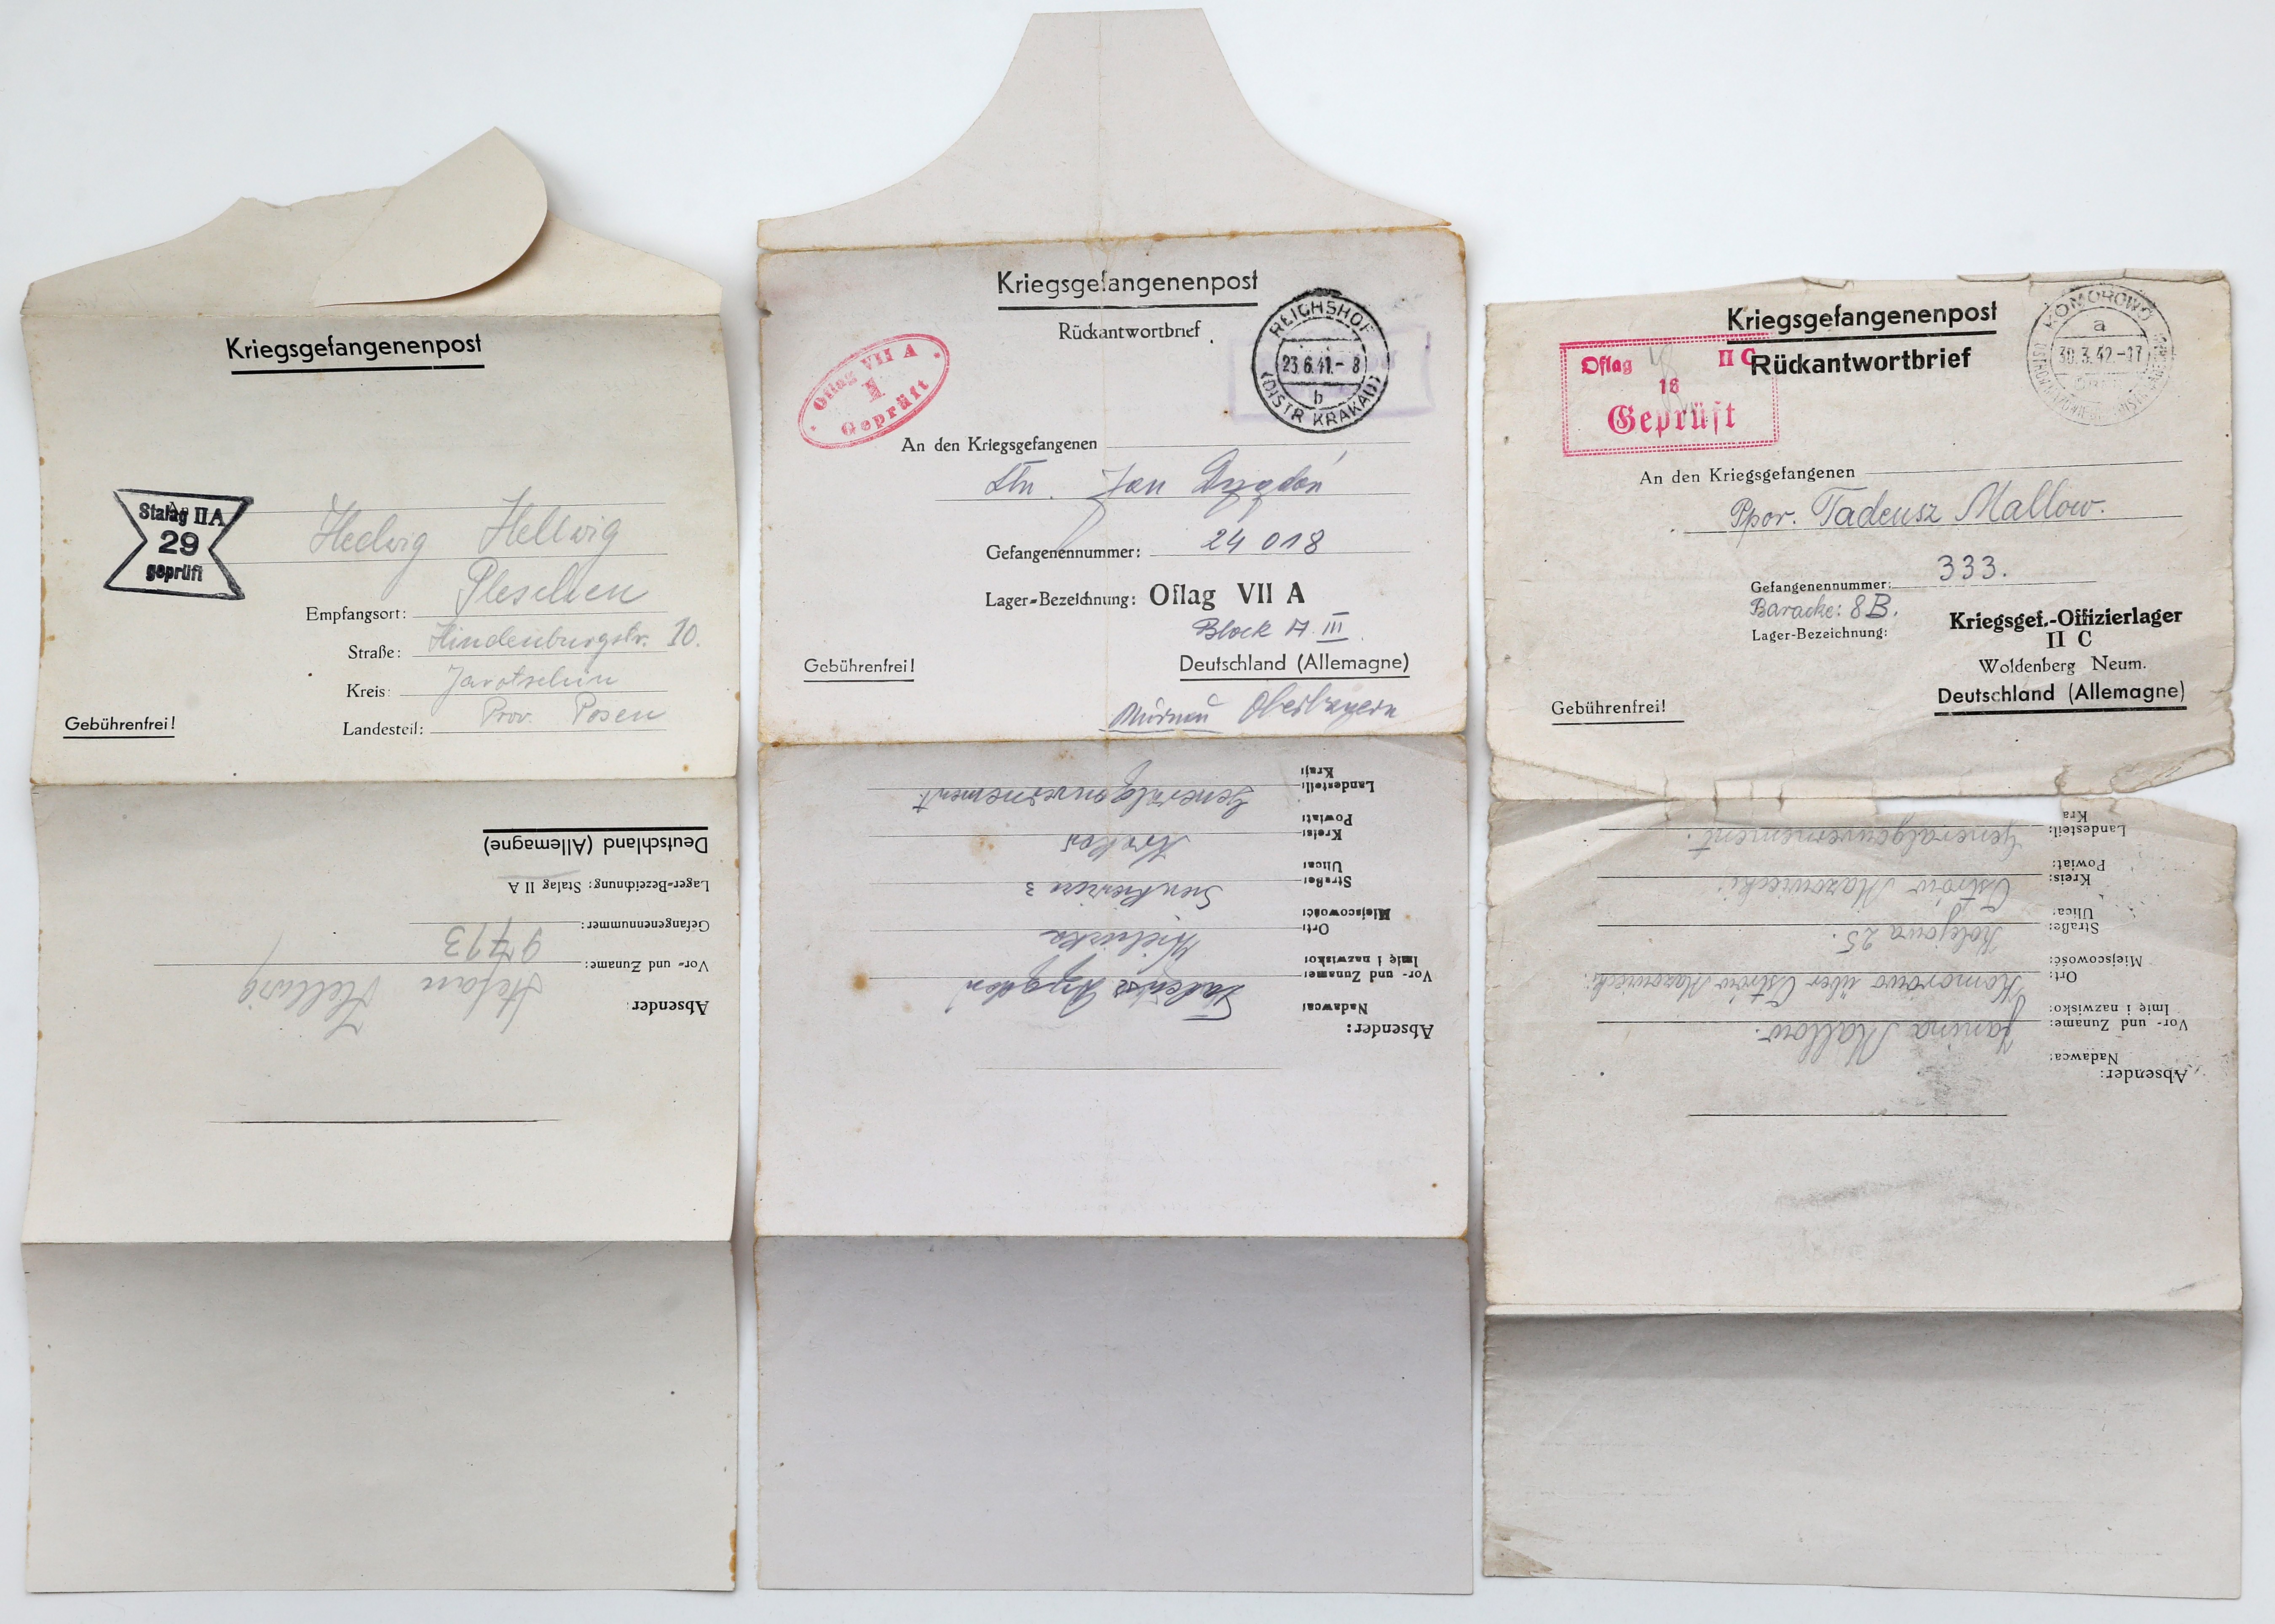 Kriegsgefangenenpost
Stalag II A
29
geprüft
Hedwig Hellwig
Empfangsort: Pleschen
Straße: Hindenburgstr. 10.
Kreis: Jarotschin
Landesteil: Prov. Posen
Gebührenfrei!
Deutschland (Allemagne)
Lager-Bezeichnung: Stalag II A
Gefangenennummer: 9713
Vor- und Zuname: Stefan Hellwig
Absender:
Kriegsgefangenenpost
Rückantwortbrief
Oflag VII A
1
Geprüft
REICHSHOF
23.6.41.-8
b
(DISTR. KRAKAU)
An den Kriegsgefangenen
Ltn. Jan
Gefangenennummer: 24 018
Lager-Bezeichnung: Oflag VII A
Block A III.
Gebührenfrei!
Deutschland (Allemagne)
Murnau Oberbayern
Kraj:
Landesteil: Generalgouvernement.
Powiat:
Kreis: Krakau
Ulica:
Straße: Sienkiewicza 3
Miejscowość:
Ort: Wieliczka
Imię i nazwisko:
Vor- und Zuname: Tadeusz
Nadawca:
Absender:
Kriegsgefangenenpost
Rückantwortbrief
Oflag II C
16
Geprüft
KOMOROWO
a
30.3.42.-17
An den Kriegsgefangenen
Ppor. Tadeusz Mallow.
Gefangenennummer: 333.
Baracke: 8B.
Lager-Bezeichnung:
Kriegsgef.-Offizierlager
II C
Woldenberg Neum.
Gebührenfrei!
Deutschland (Allemagne)
Kra
Landesteil: Generalgouvernement.
Powiat:
Kreis: Ostrów Mazowiecki.
Ulica:
Straße: Kolejowa 25.
Miejscowość:
Ort: Komorowo über Ostrów Mazowiecki.
Imię i nazwisko:
Vor- und Zuname: Janina Mallow.
Nadawca:
Absender: